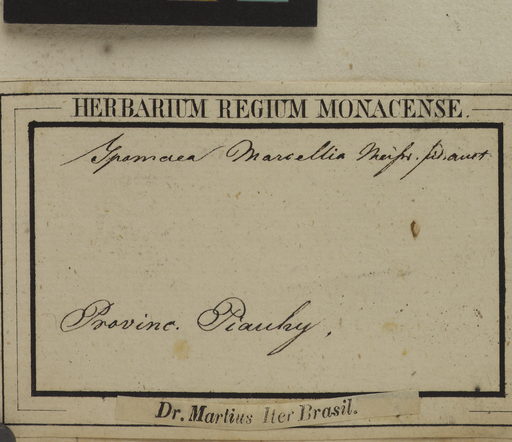 HERBARIUM REGIUM MONACENSE.
Ipomaea Marcellia Meisn.
Provinc. Piauhy.
Dr. Martius Iter Brasil.